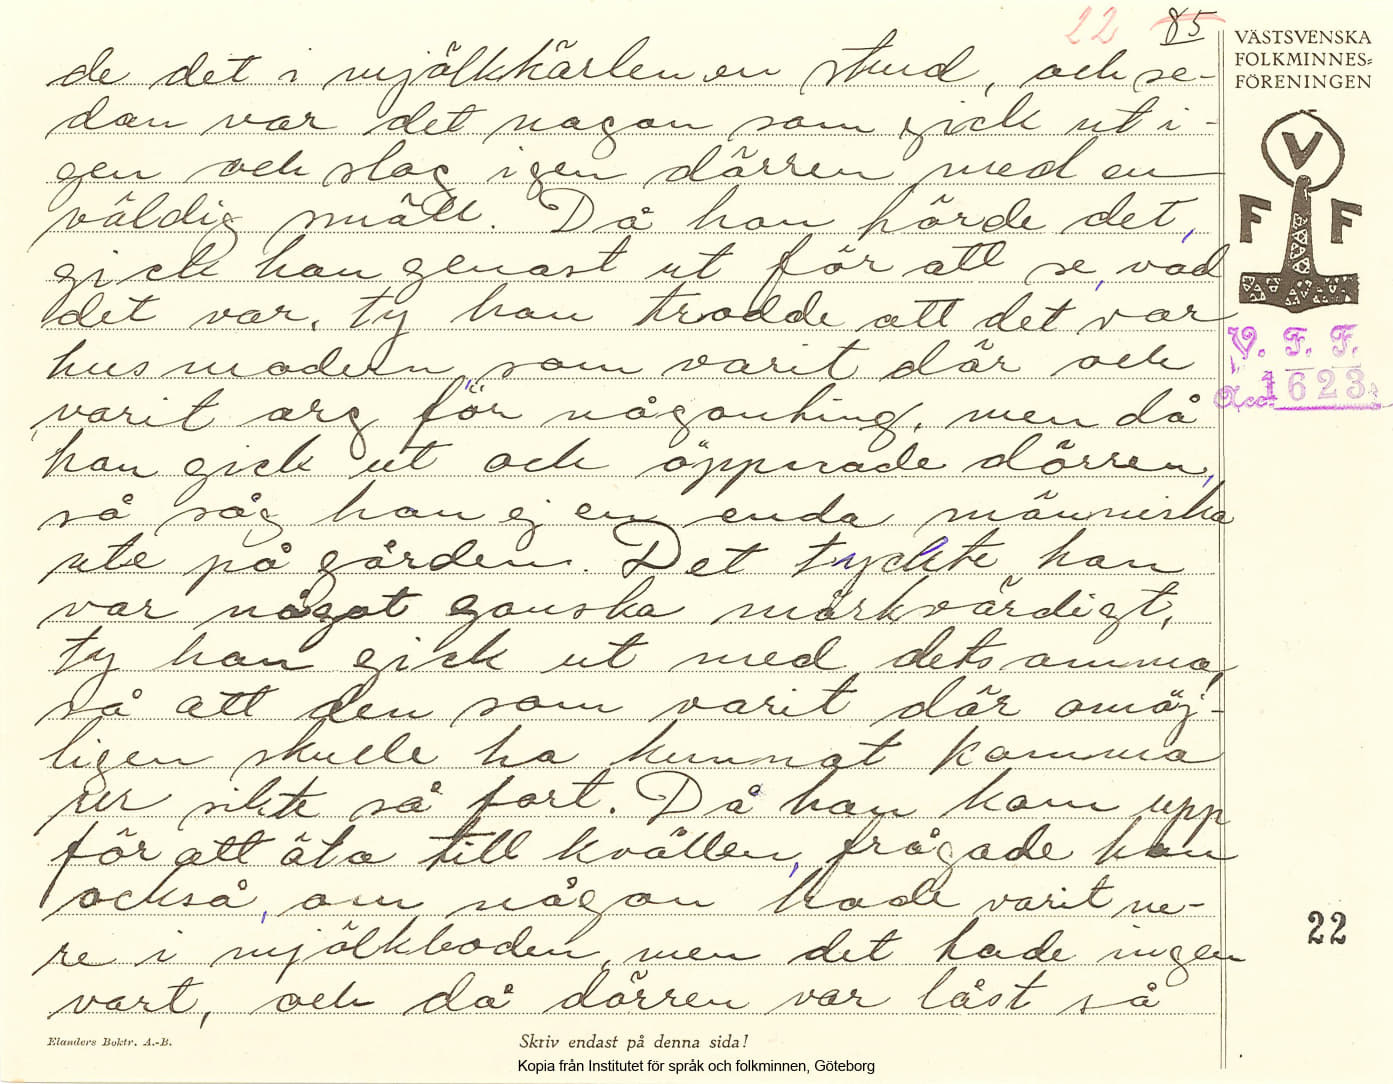 22 85
VÄSTSVENSKA
FOLKMINNES=
FÖRENINGEN
V
F F
V. F. F.
Acc. 1623.
de det i mjölkkärlen en stund, och se-
dan var det nagon som gick ut i-
gen och slog igen dörren med en
väldig smäll. Då han hörde det,
gick han genast ut för att se, vad
det var, ty han trodde att det var
husmodern, som varit där och
varit arg för någonting, men då
han gick ut och öppnade dörren,
så såg han ej en enda människa
ute på gården. Det tyckte han
var något ganska märkvärdigt,
ty han gick ut med detsamma,
så att den som varit där omöj-
ligen skulle ha kunnat komma
ur sikte så fort. Då han kom upp
för att äta till kvällen, frågade han
också, om någon hade varit ne-
re i mjölkboden, men det hade ingen
vart, och då dörren var låst så
22
Elanders Boktr. A.-B.
Skriv endast på denna sida!
Kopia från Institutet för språk och folkminnen, Göteborg